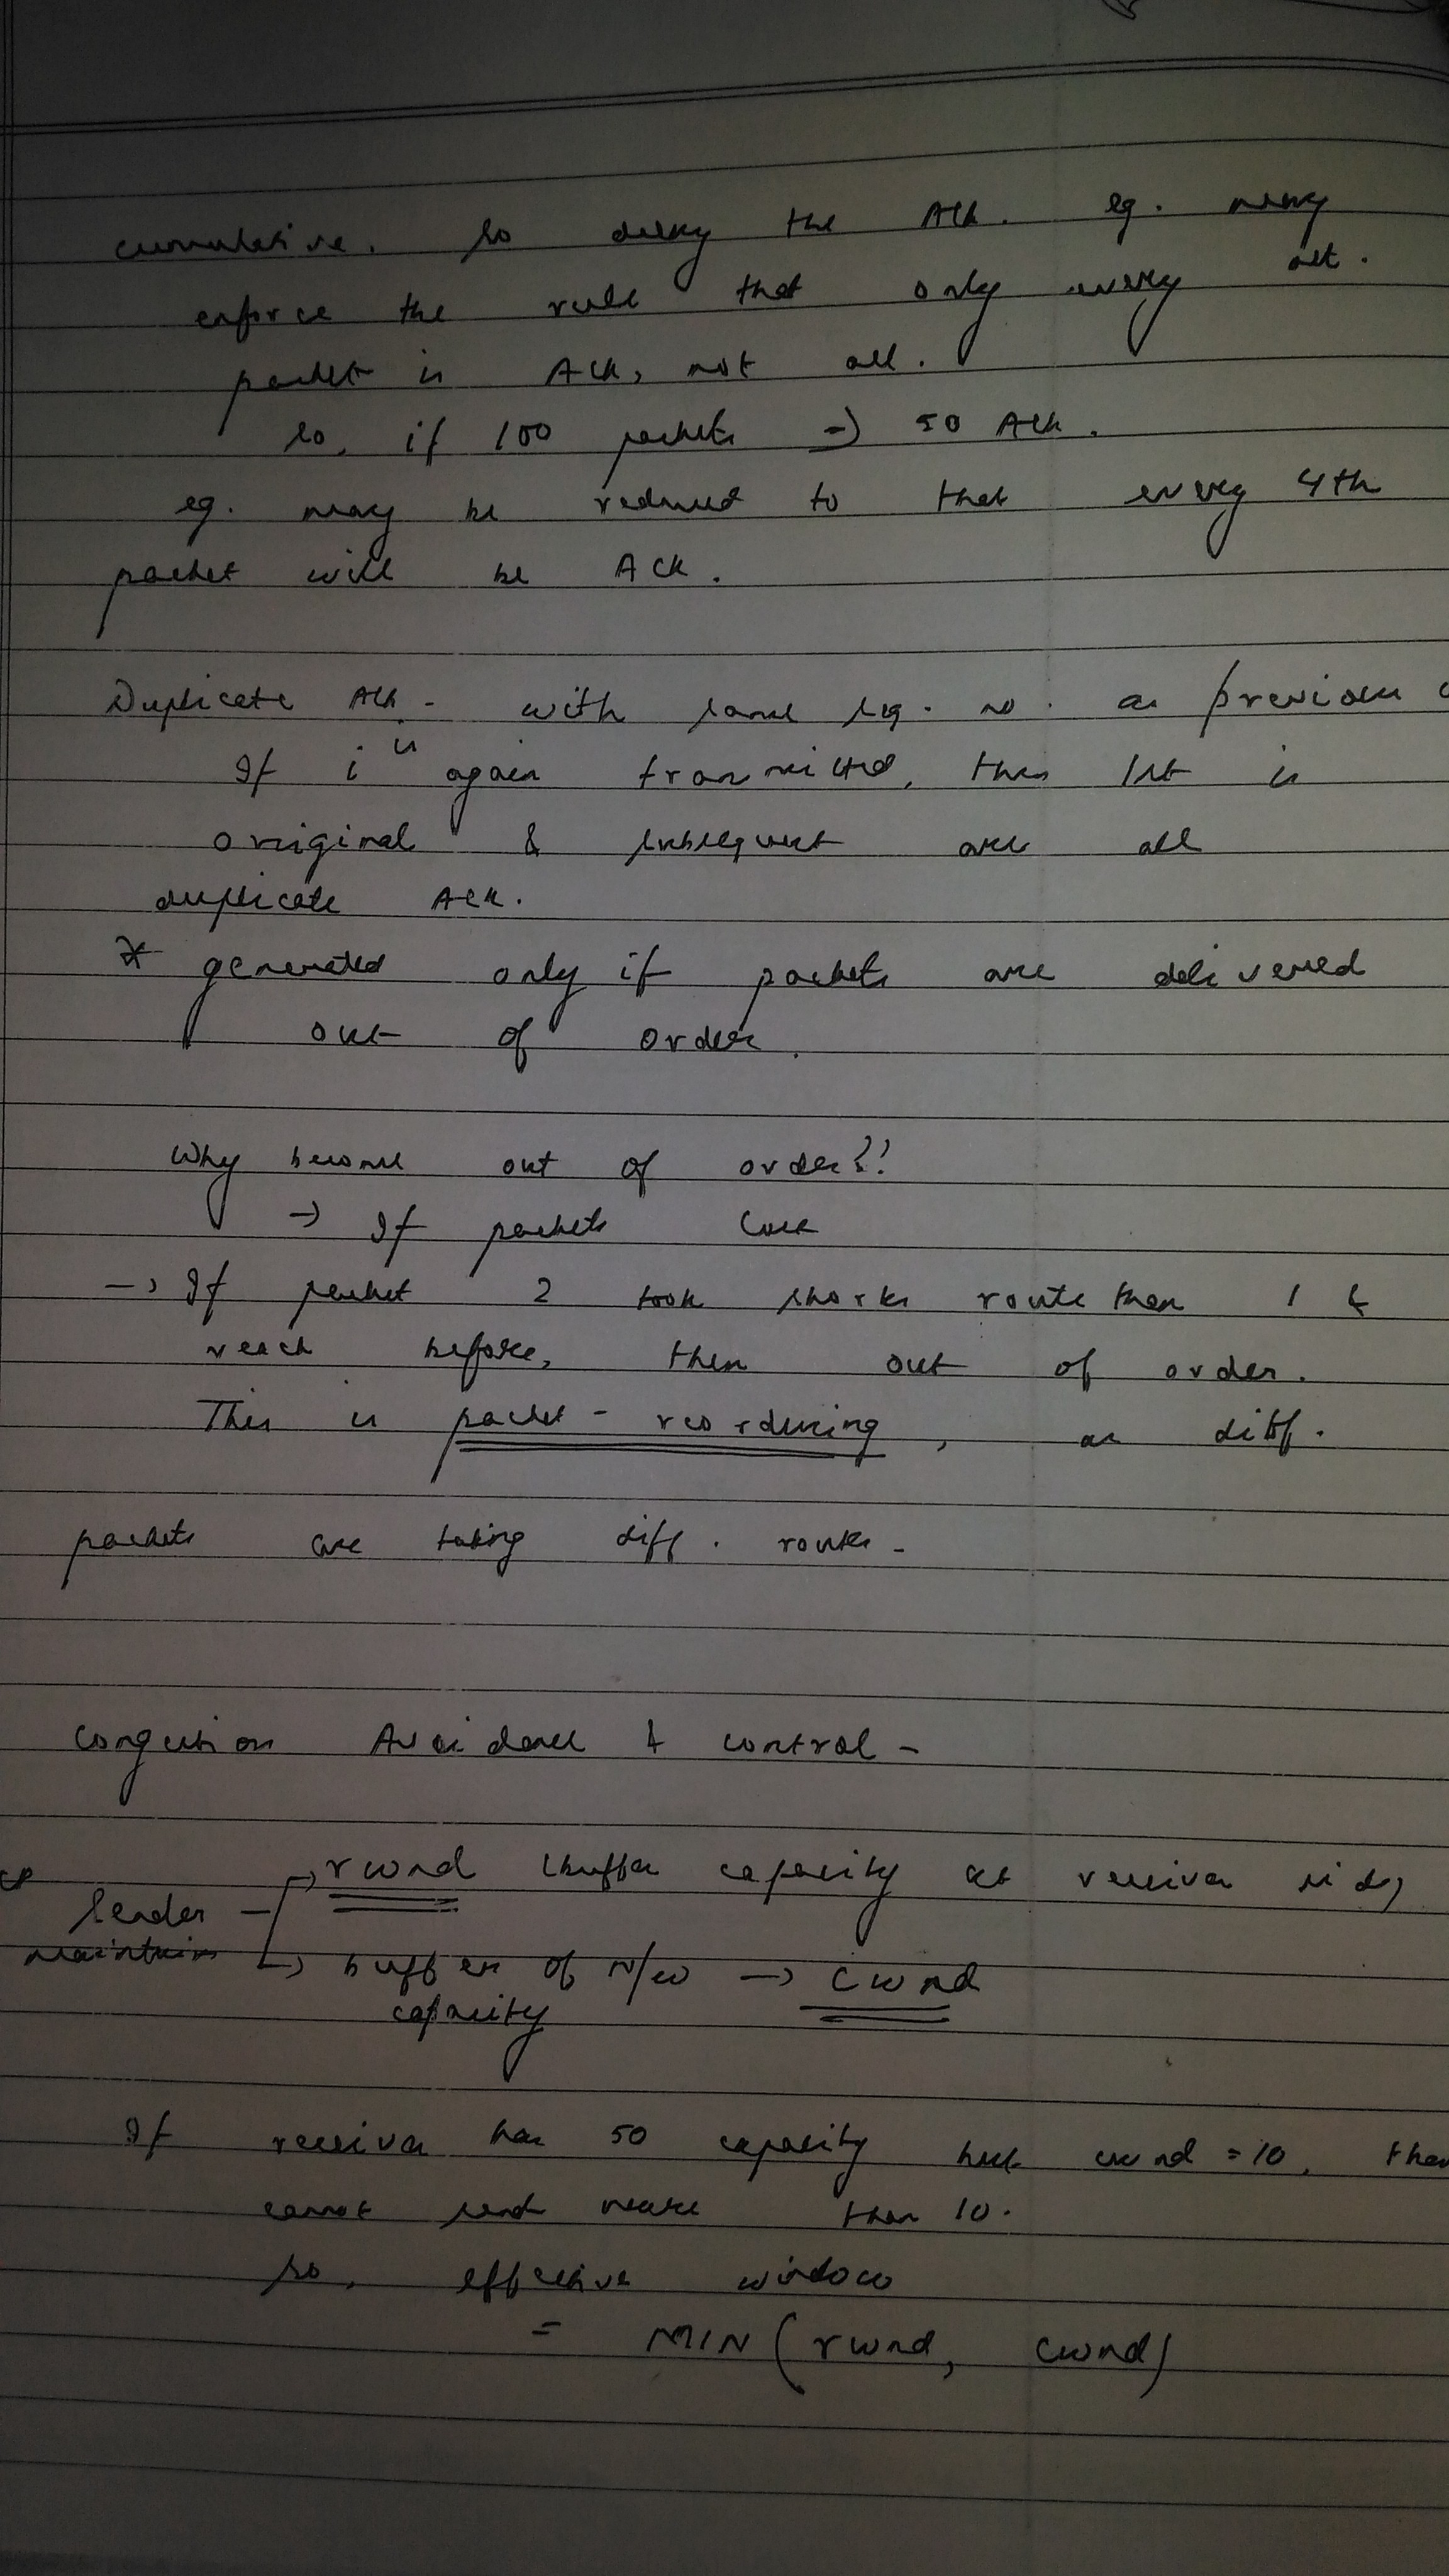 cumulative. So delay the Ack. eg. may
enforce the rule that only every alt.
packet is Ack, not all.
So, if 100 packets => 50 Ack.
eg. may be reduced to that every 4th
packet will be Ack.
Duplicate Ack - with same seq. no. as previous
If i is again transmitted, then 1st is
original & subsequent are all
duplicate Ack.
* generated only if packets are delivered
out of order.
Why become out of order?!
→ If packets lose
→ If packet 2 took shorter route than 1 &
reach before, then out of order.
This is packet - reordering, as diff.
packets are taking diff. routes -
Congestion Avoidance & control -
Sender → rwnd (buffer capacity at receiver side)
maintains → buffer of N/w → cwnd
capacity
If receiver has 50 capacity but cwnd = 10, then
cannot send more than 10.
So, effective window
= MIN (rwnd, cwnd)